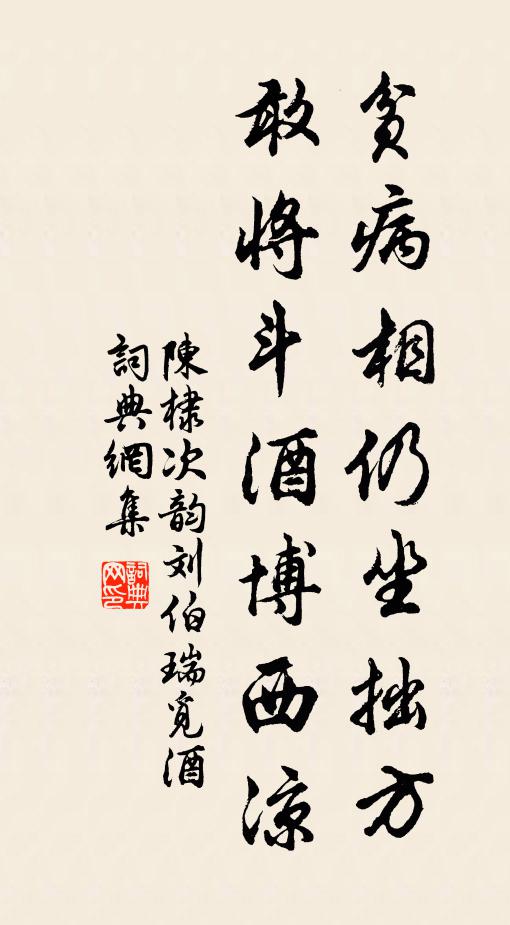 貧病相仍坐拙方
敢將斗酒博西涼
陳棣次韵刘伯瑞覓酒
詞典網集
詞典
网印